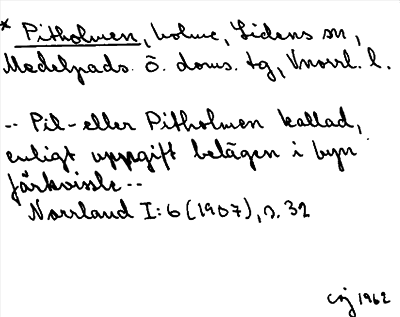 * Pitholmen, holme, Lidens sn,
Medelpads. ö. doms. tg, Vnorrl. l.
-- Pil- eller Pitholmen kallad,
enligt uppgift belägen i byn
Järkvissle --
Norrland I:6 (1907), s. 32
1962